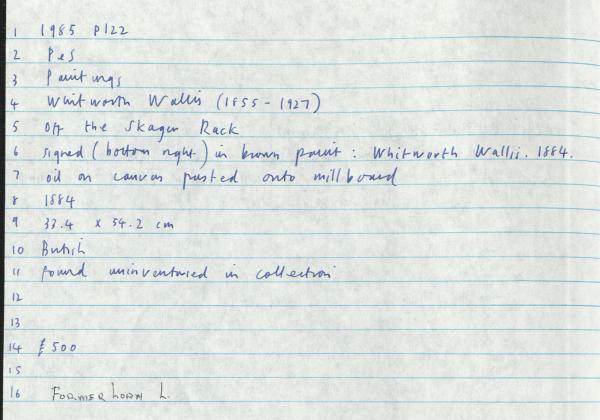 1 1985 P122
2 Pes
3 Paintings
4 Whitworth Wallis (1855-1927)
5 Off the Skager Rack
6 signed (bottom right) in brown paint: Whitworth Wallis. 1884.
7 oil on canvas pasted onto millboard
8 1884
9 33.4 x 54.2 cm
10 British
11 found uninventoried in collection
12
13
14 £500
15
16 FORMER LOAN L.